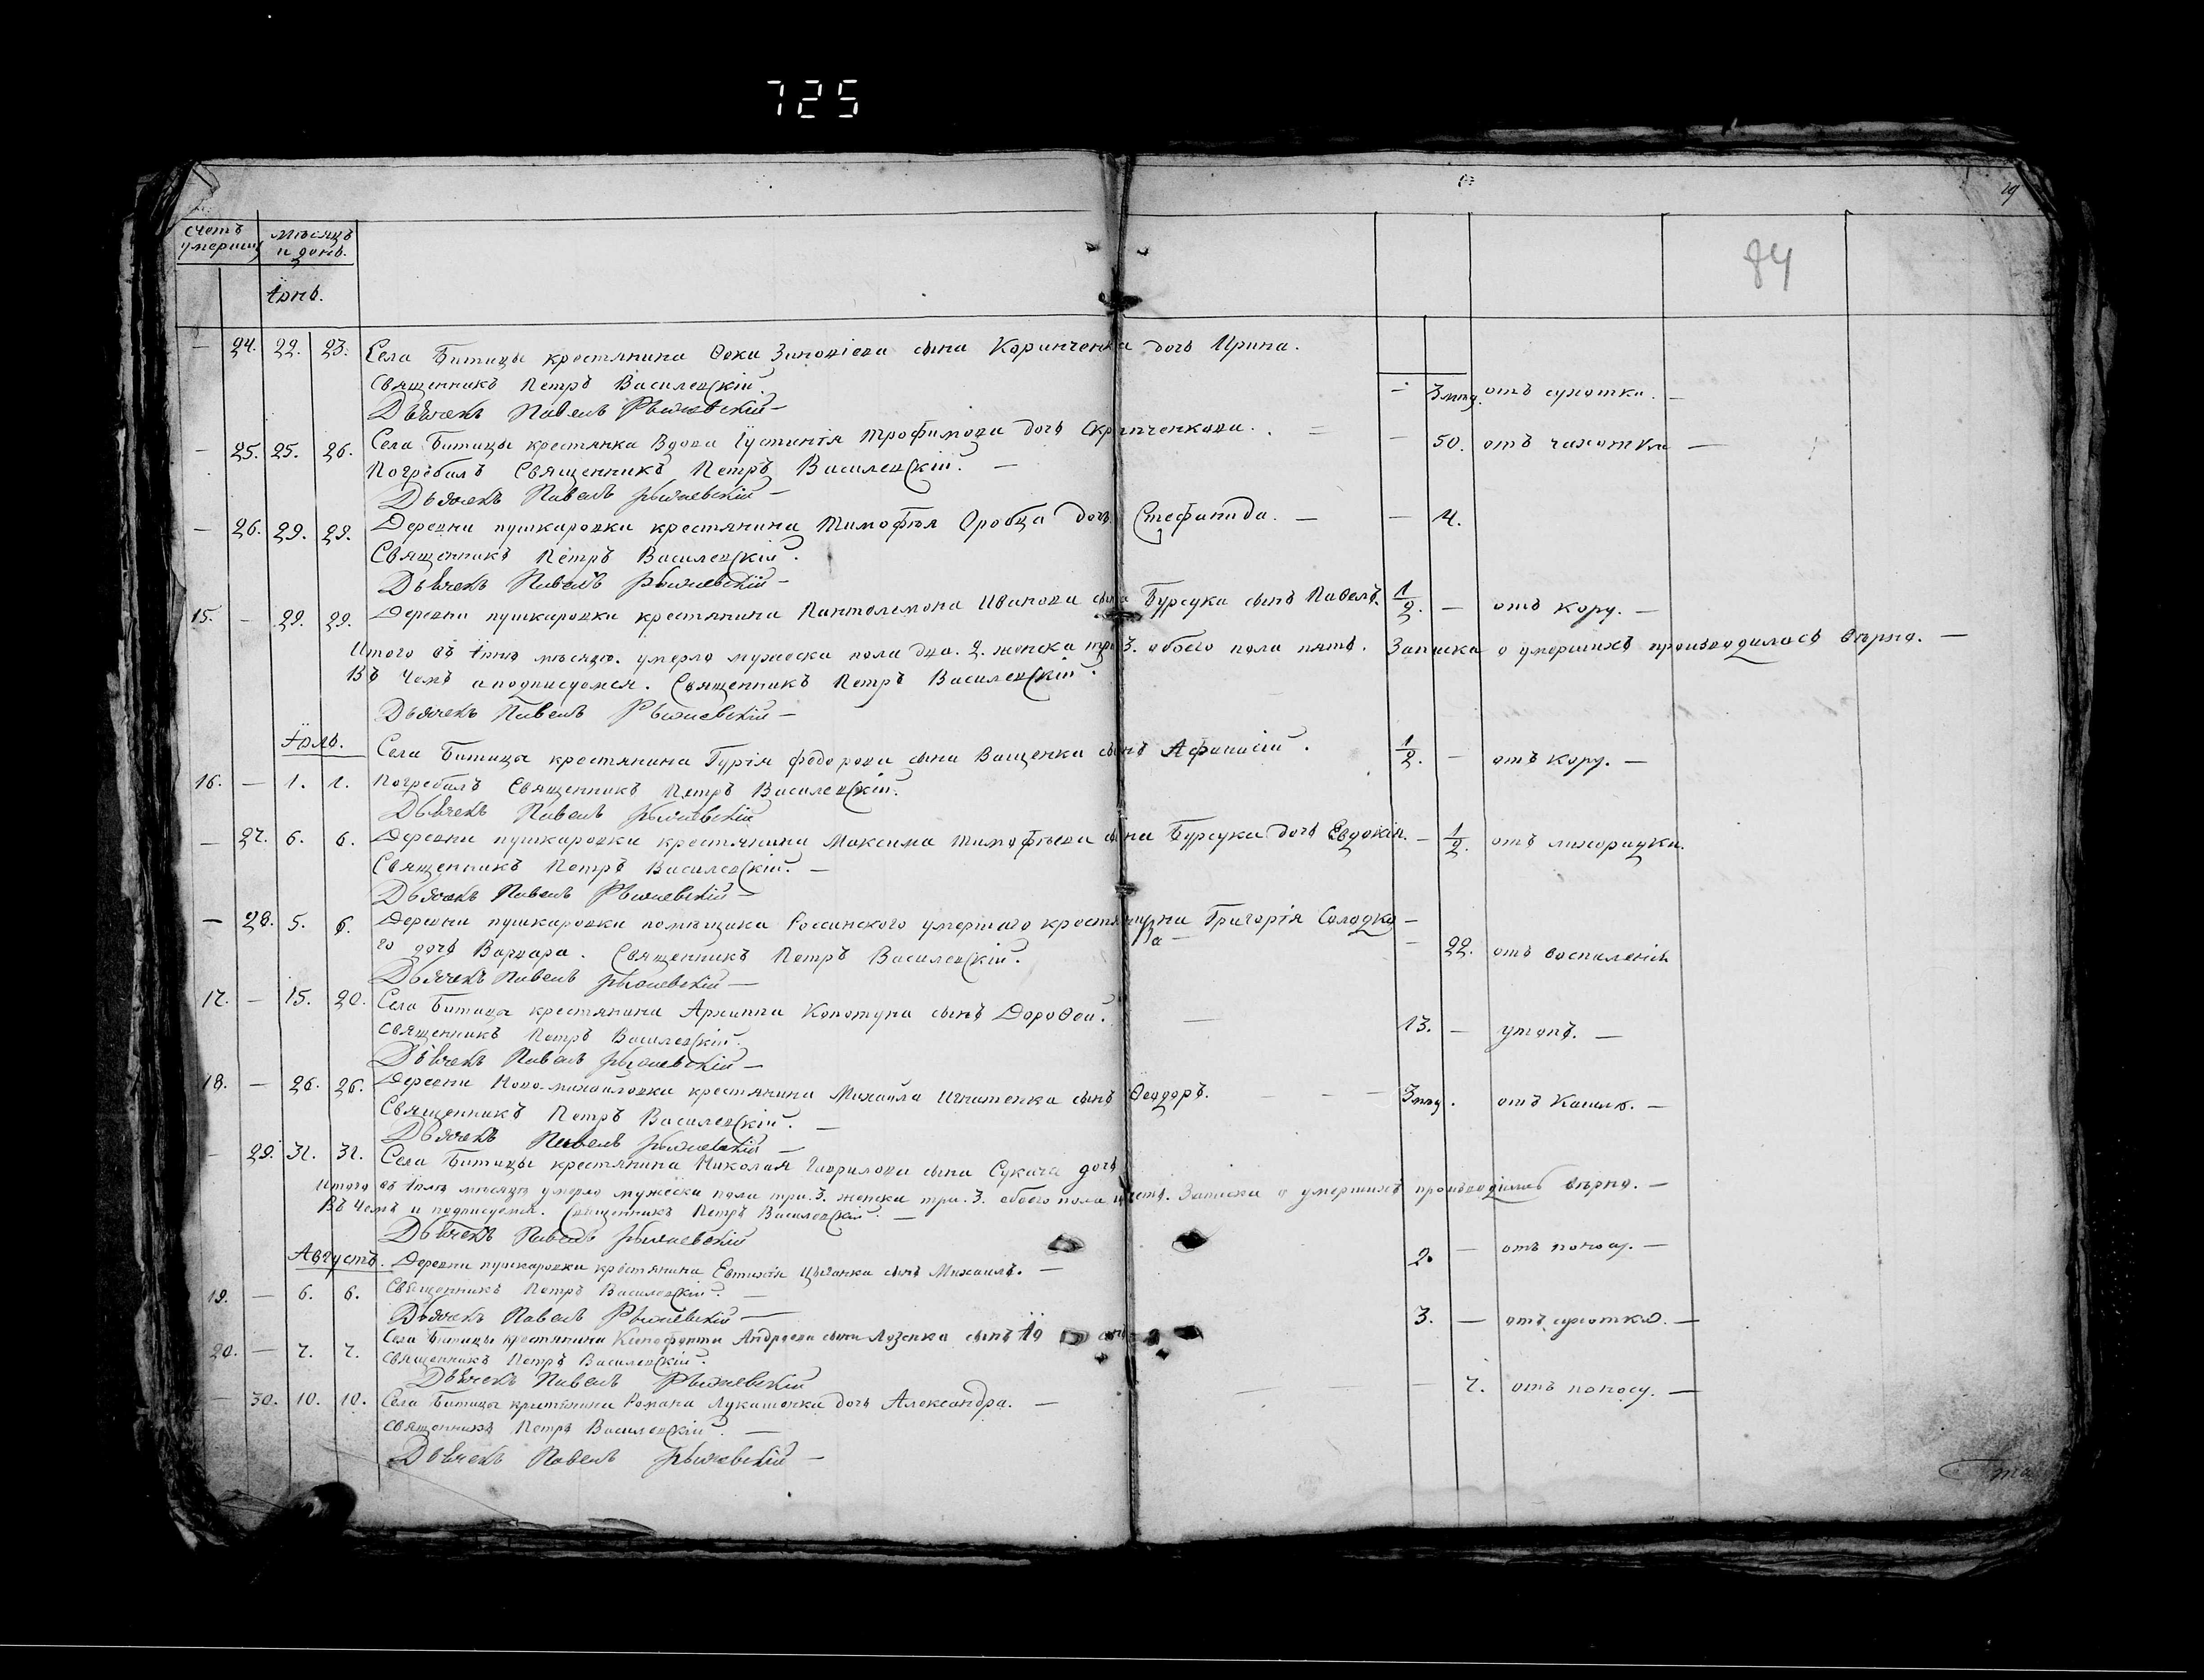 725
29
84
Счетъ умершихъ
Мѣсяцъ и день.
Іюнь.
— 24. 22. 23. Села Битицы крестянина Ѳоки Зиновіева сына Коринченка дочь Ирина. — 3 мѣд. отъ сухотки. —
Священникъ Петръ Василевскій.
Дьячекъ Павелъ Рыжевскій —
— 25. 25. 26. Села Битицы крестянка Вдова Іустинія Трофимова дочь Скрипченкова. — 50. отъ чахотки —
Погребалъ Священникъ Петръ Василевскій. —
Дьячекъ Павелъ Рыжевскій —
— 26. 29. 29. Деревни пушкаровки крестянина Тимофѣя Оробца дочь Стефанида. — — 4.
Священникъ Петръ Василевскій.
Дьячекъ Павелъ Рыжевскій —
15. — 29. 29. Деревни пушкаровки крестянина Пантелемона Иванова сына Бурсука сынъ Павелъ. 1/2. — отъ кору. —
Итого въ іюнѣ мѣсяцѣ. умерло мужеска пола два. 2. женска три 3. обоего пола пять. Записка о умершихъ производилась вѣрно. —
Въ чемъ и подписуемся. Священникъ Петръ Василевскій.
Дьячекъ Павелъ Рыжевскій —
Іюль.
Села Битицы крестянина Гурія федорова сына Ващенка сынъ Афанасій. 1/2. — отъ кору. —
16. — 1. 1. Погребалъ Священникъ Петръ Василевскій.
Дьячекъ Павелъ Рыжевскій
— 27. 6. 6. Деревни пушкаровки крестянина Максима Тимофѣева сына Бурсука дочь Евдокія. — 1/2. отъ лихорадки.
Священникъ Петръ Василевскій. —
Дьячекъ Павелъ Рыжевскій —
— 28. 5. 6. Деревни пушкаровки помѣщика Россинского умершаго крестянина Григорія Солодка-
го дочь Варвара. Священникъ Петръ Василевскій. — 22. отъ воспаленія
Дьячекъ Павелъ Рыжевскій —
17. — 15. 20. Села Битицы крестянина Архиппа Копотуна сынъ Дороѳей. — 13. — утопъ. —
Священникъ Петръ Василевскій.
Дьячекъ Павелъ Рыжевскій —
18. — 26. 26. Деревни Ново-михайловки крестянина Михаила Игнатенка сынъ Ѳеодоръ. 3 мѣд. отъ Кашлю. —
Священникъ Петръ Василевскій. —
Дьячекъ Павелъ Рыжевскій —
— 29. 31. 31. Села Битицы крестянина Николая Гаврилова сына Сукача дочь
Итого въ іюлѣ мѣсяцѣ умерло мужеска пола три. 3. женска три. 3. обоего пола шесть. Записка о умершихъ производилась вѣрно. —
Въ чемъ и подписуемся. Священникъ Петръ Василевскій. —
Дьячекъ Павелъ Рыжевскій
Августъ.
Деревни пушкаровки крестянина Евтихія Цыганка сынъ Михаилъ. — 2. — отъ поносу. —
19. — 6. 6. Священникъ Петръ Василевскій. —
Дьячекъ Павелъ Рыжевскій —
Села Битицы крестянина Ксенофонта Андреева сына Лозенка сынъ 3. — отъ сухотки. —
20. — 7. 7. Священникъ Петръ Василевскій.
Дьячекъ Павелъ Рыжевскій
— 30. 10. 10. Села Битицы крестянина Романа Лукашенка дочь Александра. — — 7. отъ поносу. —
Священникъ Петръ Василевскій. —
Дьячекъ Павелъ Рыжевскій —